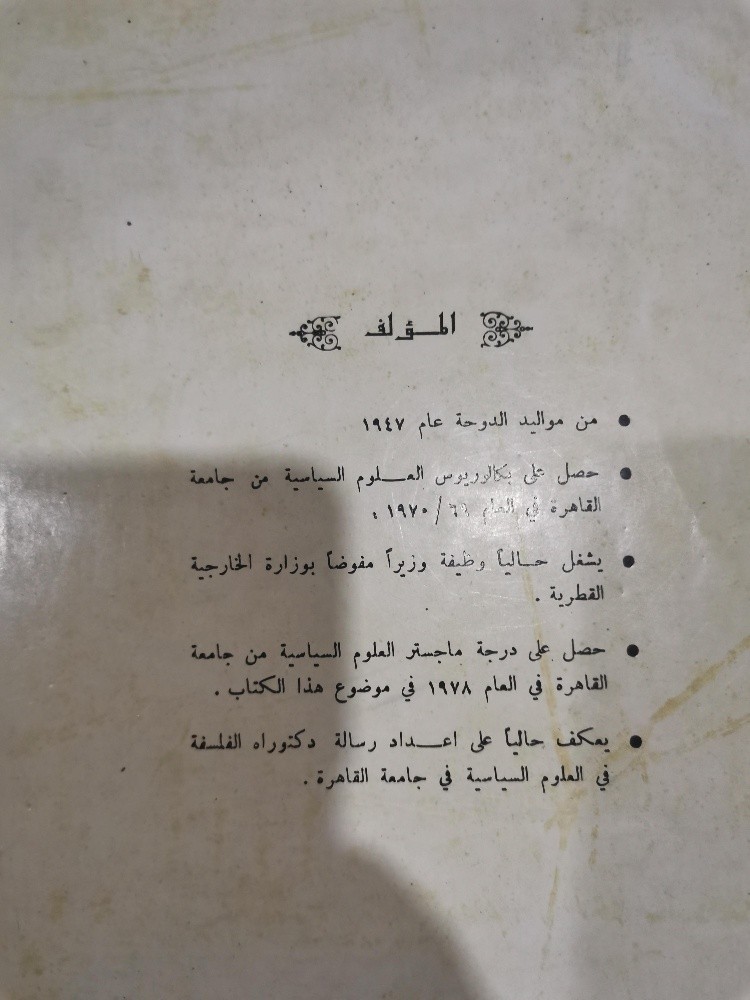 المؤلف
● من مواليد الدوحة عام ١٩٤٧
● حصل على بكالوريوس العلوم السياسية من جامعة
القاهرة في العام ٦٩/١٩٧٠ .
● يشغل حالياً وظيفة وزيراً مفوضاً بوزارة الخارجية
القطرية .
● حصل على درجة ماجستر العلوم السياسية من جامعة
القاهرة في العام ١٩٧٨ في موضوع هذا الكتاب .
● يعكف حالياً على اعداد رسالة دكتوراه الفلسفة
في العلوم السياسية في جامعة القاهرة .